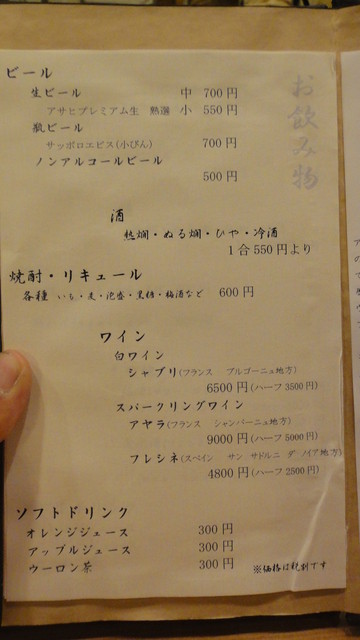 お飲み物
ビール
生ビール 中 700円
アサヒプレミアム生 熟選 小 550円
瓶ビール
サッポロエビス(小びん) 700円
ノンアルコールビール
500円
酒
熱燗・ぬる燗・ひや・冷酒
1合550円より
焼酎・リキュール
各種 いも・麦・泡盛・黒糖・梅酒など 600円
ワイン
白ワイン
シャブリ(フランス ブルゴーニュ地方)
6500円(ハーフ3500円)
スパークリングワイン
アヤラ(フランス シャンパーニュ地方)
9000円(ハーフ5000円)
フレシネ(スペイン サン サドルニ ダ ノイア地方)
4800円(ハーフ2800円)
ソフトドリンク
オレンジジュース 300円
アップルジュース 300円
ウーロン茶 300円
※価格は税別です